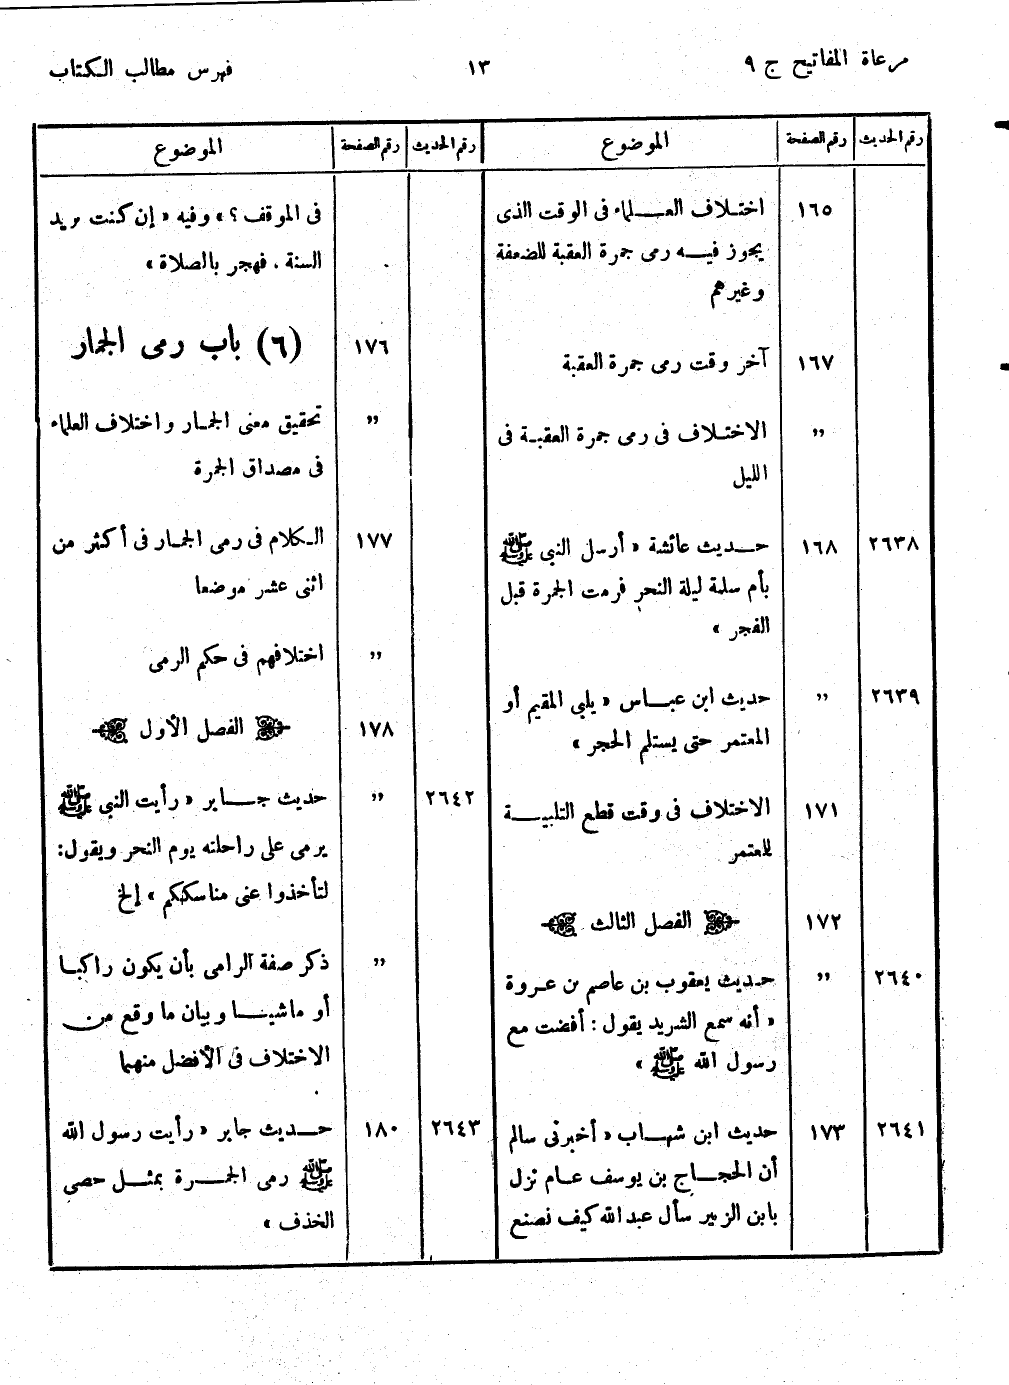 مرعاة المفاتيح ج ٩
١٣
فهرس مطالب الكتاب
رقم الحديث رقم الصفحة الموضوع
١٦٥ اختلاف العلماء فى الوقت الذى
يجوز فيه رمى جمرة العقبة للضعفة
وغيرهم
١٦٧ آخر وقت رمى جمرة العقبة
,, الاختلاف فى رمى جمرة العقبة فى
الليل
٢٦٣٨ ١٦٨ حديث عائشة « أرسل النبى ﷺ
بأم سلمة ليلة النحر فرمت الجمرة قبل
الفجر »
٢٦٣٩ ,, حديث ابن عباس « يلبى المقيم أو
المعتمر حتى يستلم الحجر »
١٧١ الاختلاف فى وقت قطع التلبية
للمعتمر
١٧٢ الفصل الثالث
٢٦٤٠ ,, حديث يعقوب بن عاصم بن عروة
« أنه سمع الشريد يقول : أفضت مع
رسول الله ﷺ »
٢٦٤١ ١٧٣ حديث ابن شهاب « أخبرنى سالم
أن الحجاج بن يوسف عام نزل
بابن الزبير سأل عبد الله كيف نصنع
رقم الحديث رقم الصفحة الموضوع
فى الموقف ؟ » وفيه « إن كنت تريد
السنة . فهجر بالصلاة »
١٧٦ (٦) باب رمى الجمار
,, تحقيق معنى الجمار واختلاف العلماء
فى مصداق الجمرة
١٧٧ الكلام فى رمى الجمار فى أكثر من
اثنى عشر موضعا
,, اختلافهم فى حكم الرمى
١٧٨ الفصل الأول
٢٦٤٢ ,, حديث جابر « رأيت النبى ﷺ
يرمى على راحلته يوم النحر ويقول :
لتأخذوا عنى مناسككم » إلخ
,, ذكر صفة الرامى بأن يكون راكبا
أو ماشيا وبيان ما وقع من
الاختلاف فى الأفضل منهما
٢٦٤٣ ١٨٠ حديث جابر « رأيت رسول الله
ﷺ رمى الجمرة بمثل حصى
الخذف »